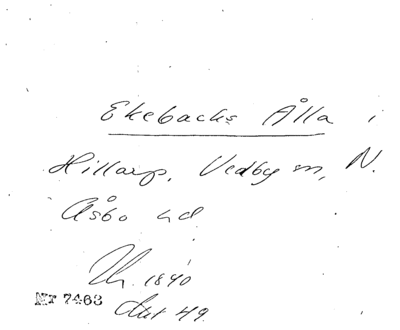 Ekebacks Ålla i
Hillarp, Vedby sn, N.
Åsbo hd
1840
Nr 7463 Akt 49.